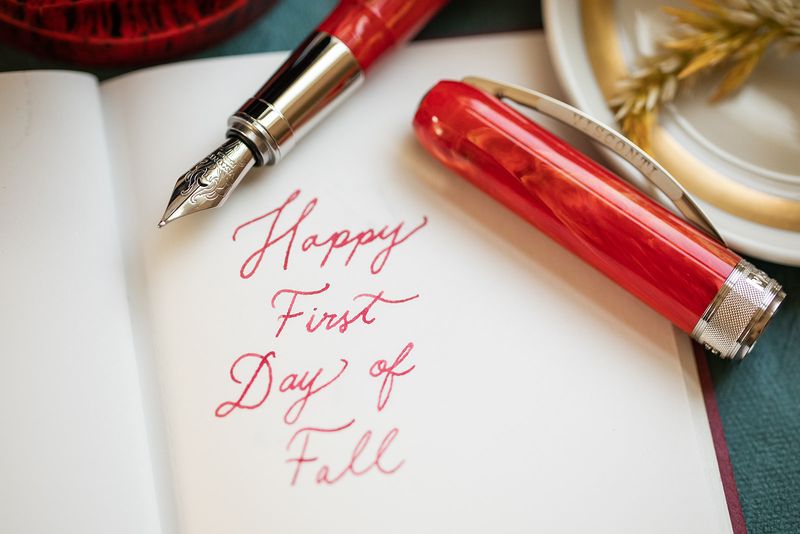 VISCONTI
Happy
First
Day of
Fall